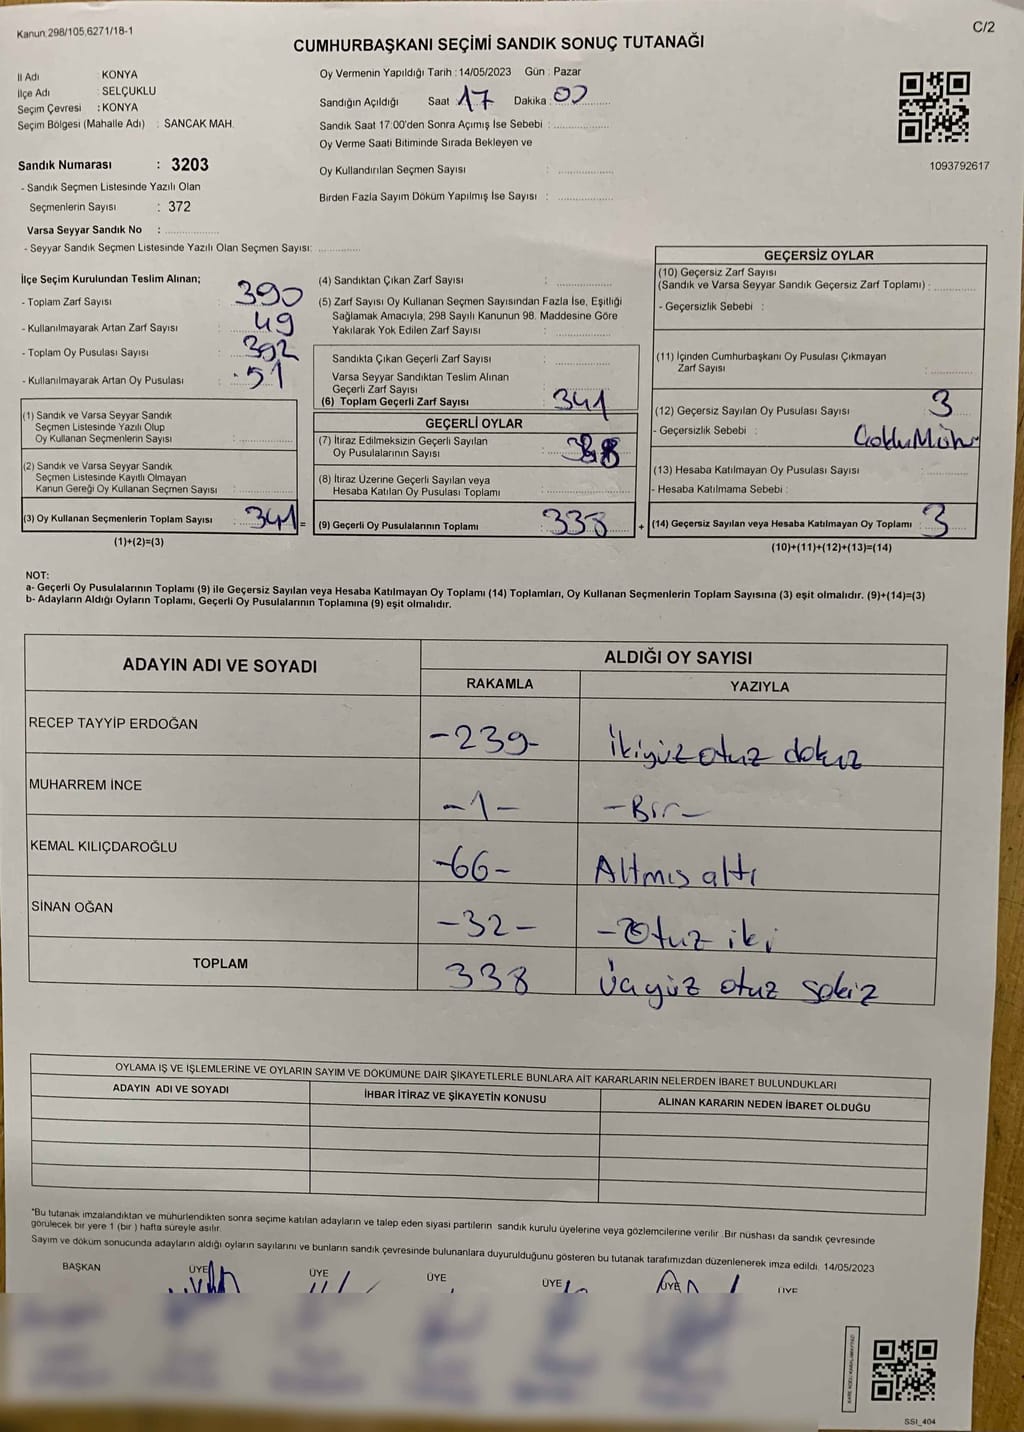 Kanun 298/105,6271/18-1
C/2
CUMHURBAŞKANI SEÇİMİ SANDIK SONUÇ TUTANAĞI
İl Adı : KONYA
İlçe Adı : SELÇUKLU
Seçim Çevresi : KONYA
Seçim Bölgesi (Mahalle Adı) : SANCAK MAH.
Sandık Numarası : 3203
- Sandık Seçmen Listesinde Yazılı Olan
Seçmenlerin Sayısı : 372
Varsa Seyyar Sandık No :
- Seyyar Sandık Seçmen Listesinde Yazılı Olan Seçmen Sayısı:
Oy Vermenin Yapıldığı Tarih : 14/05/2023 Gün : Pazar
Sandığın Açıldığı Saat 17 Dakika 00
Sandık Saat 17:00'den Sonra Açımış İse Sebebi :
Oy Verme Saati Bitiminde Sırada Bekleyen ve
Oy Kullandırılan Seçmen Sayısı :
Birden Fazla Sayım Döküm Yapılmış İse Sayısı :
1093792617
İlçe Seçim Kurulundan Teslim Alınan;
- Toplam Zarf Sayısı : 390
- Kullanılmayarak Artan Zarf Sayısı : 49
- Toplam Oy Pusulası Sayısı : 392
- Kullanılmayarak Artan Oy Pusulası : 51
(1) Sandık ve Varsa Seyyar Sandık
Seçmen Listesinde Yazılı Olup
Oy Kullanan Seçmenlerin Sayısı :
(2) Sandık ve Varsa Seyyar Sandık
Seçmen Listesinde Kayıtlı Olmayan
Kanun Gereği Oy Kullanan Seçmen Sayısı :
(3) Oy Kullanan Seçmenlerin Toplam Sayısı : 341 =
(1)+(2)=(3)
(4) Sandıktan Çıkan Zarf Sayısı :
(5) Zarf Sayısı Oy Kullanan Seçmen Sayısından Fazla İse, Eşitliği
Sağlamak Amacıyla; 298 Sayılı Kanunun 98. Maddesine Göre
Yakılarak Yok Edilen Zarf Sayısı :
Sandıkta Çıkan Geçerli Zarf Sayısı :
Varsa Seyyar Sandıktan Teslim Alınan
Geçerli Zarf Sayısı :
(6) Toplam Geçerli Zarf Sayısı : 341
GEÇERLİ OYLAR
(7) İtiraz Edilmeksizin Geçerli Sayılan
Oy Pusulalarının Sayısı : 338
(8) İtiraz Üzerine Geçerli Sayılan veya
Hesaba Katılan Oy Pusulası Toplamı :
(9) Geçerli Oy Pusulalarının Toplamı : 338 +
GEÇERSİZ OYLAR
(10) Geçersiz Zarf Sayısı
(Sandık ve Varsa Seyyar Sandık Geçersiz Zarf Toplamı) :
- Geçersizlik Sebebi :
(11) İçinden Cumhurbaşkanı Oy Pusulası Çıkmayan
Zarf Sayısı :
(12) Geçersiz Sayılan Oy Pusulası Sayısı : 3
- Geçersizlik Sebebi :
(13) Hesaba Katılmayan Oy Pusulası Sayısı :
- Hesaba Katılmama Sebebi :
(14) Geçersiz Sayılan veya Hesaba Katılmayan Oy Toplamı : 3
(10)+(11)+(12)+(13)=(14)
NOT:
a- Geçerli Oy Pusulalarının Toplamı (9) ile Geçersiz Sayılan veya Hesaba Katılmayan Oy Toplamı (14) Toplamları, Oy Kullanan Seçmenlerin Toplam Sayısına (3) eşit olmalıdır. (9)+(14)=(3)
b- Adayların Aldığı Oyların Toplamı, Geçerli Oy Pusulalarının Toplamına (9) eşit olmalıdır.
ADAYIN ADI VE SOYADI
ALDIĞI OY SAYISI
RAKAMLA YAZIYLA
RECEP TAYYİP ERDOĞAN -239- İkiyüz otuz dokuz
MUHARREM İNCE -1- -Bir-
KEMAL KILIÇDAROĞLU -66- Altmış altı
SİNAN OĞAN -32- -Otuz iki
TOPLAM 338 Üçyüz otuz sekiz
OYLAMA İŞ VE İŞLEMLERİNE VE OYLARIN SAYIM VE DÖKÜMÜNE DAİR ŞİKAYETLERLE BUNLARA AİT KARARLARIN NELERDEN İBARET BULUNDUKLARI
ADAYIN ADI VE SOYADI İHBAR İTİRAZ VE ŞİKAYETİN KONUSU ALINAN KARARIN NEDEN İBARET OLDUĞU
*Bu tutanak imzalandıktan ve mühürlendikten sonra seçime katılan adayların ve talep eden siyasi partilerin sandık kurulu üyelerine veya gözlemcilerine verilir. Bir nüshası da sandık çevresinde
görülecek bir yere 1 (bir ) hafta süreyle asılır.
Sayım ve döküm sonucunda adayların aldığı oyların sayılarını ve bunların sandık çevresinde bulunanlara duyurulduğunu gösteren bu tutanak tarafımızdan düzenlenerek imza edildi. 14/05/2023
BAŞKAN ÜYE ÜYE ÜYE ÜYE ÜYE ÜYE
SSI_404